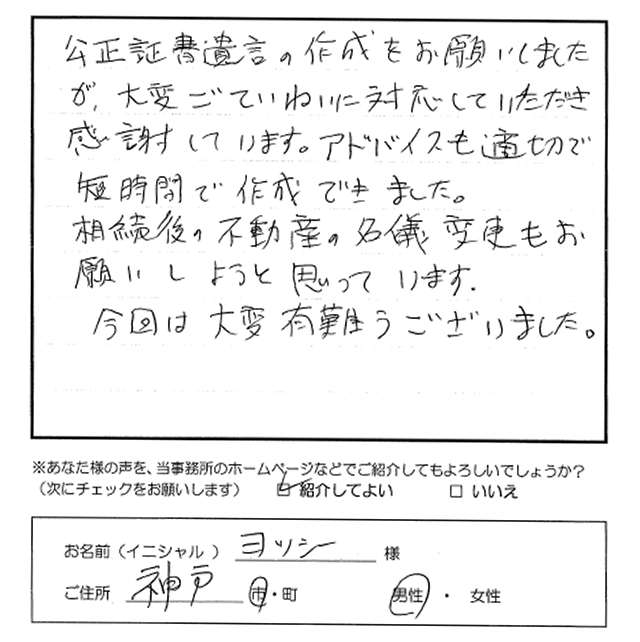 公正証書遺言の作成をお願いしました
が、大変ごていねいに対応していただき
感謝しています。アドバイスも適切で
短時間で作成できました。
相続後の不動産の名儀変更もお
願いしようと思っています.
今回は大変有難うございました。
※あなた様の声を、当事務所のホームページなどでご紹介してもよろしいでしょうか?
(次にチェックをお願いします) ☑ 紹介してよい □ いいえ
お名前(イニシャル) ヨッシー 様
ご住所 神戸 市・町 男性・女性